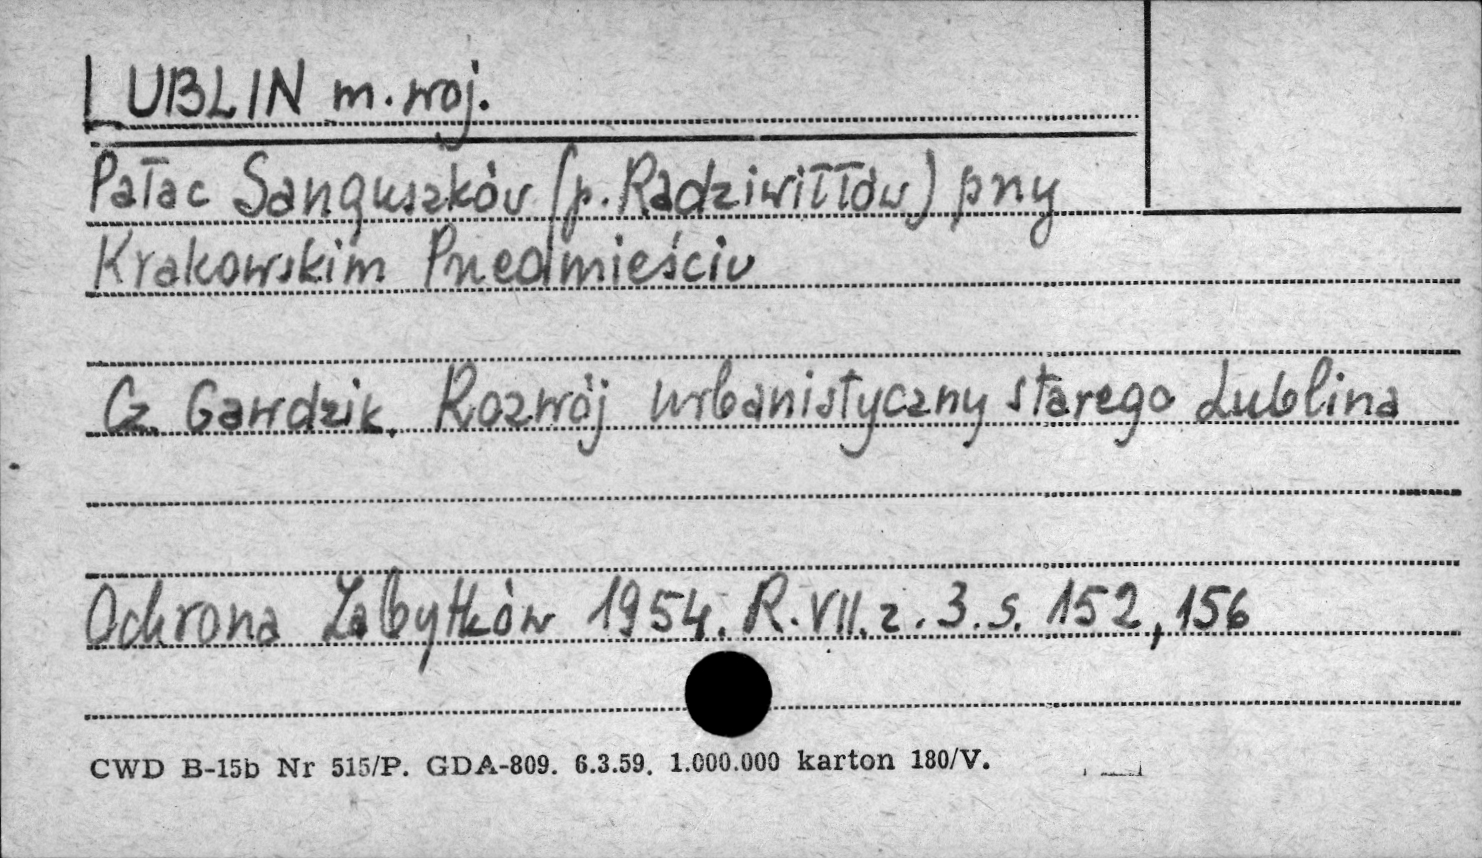 LUBLIN m. woj.
Pałac Sanguszków (p. Radziwiłłów) przy
Krakowskim Przedmieściu
Cz. Gawdzik. Rozwój urbanistyczny starego Lublina
Ochrona Zabytków 1954. R. VII. z. 3. s. 152, 156
CWD B-15b Nr 515/P. GDA-809. 6.3.59. 1.000.000 karton 180/V.